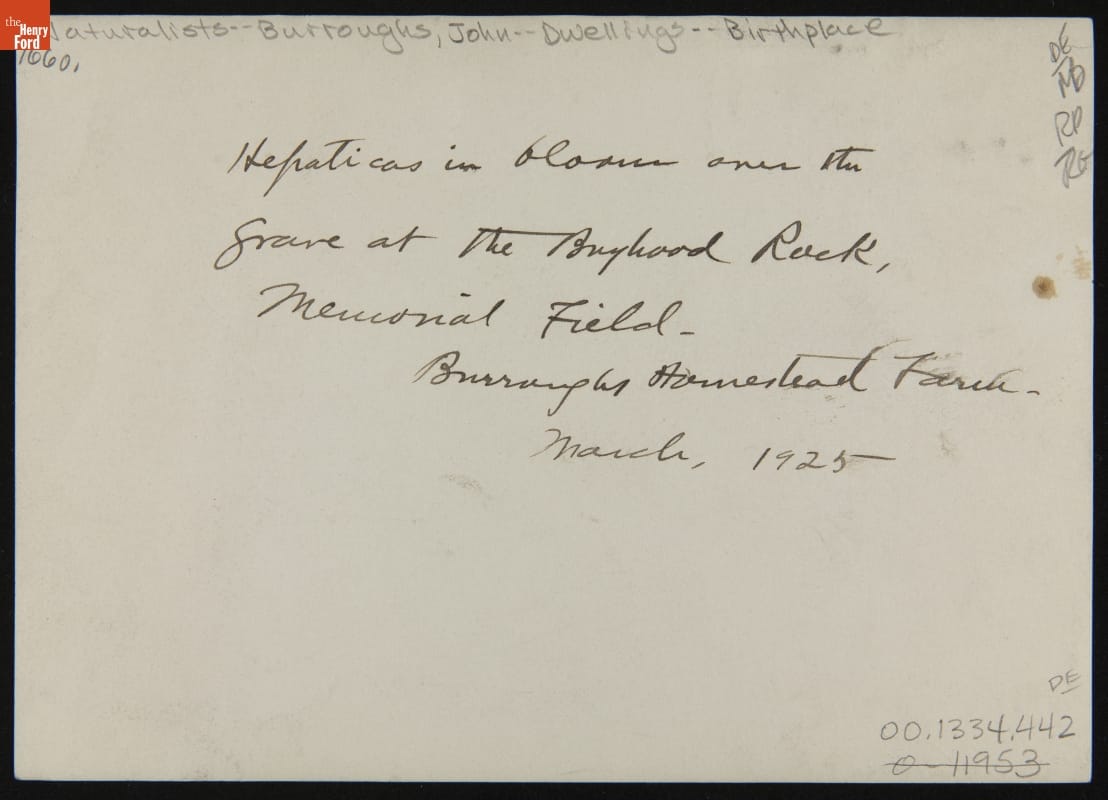 the
Henry
Ford
Naturalists--Burroughs, John--Dwellings--Birthplace
1660.
DE
MB
RP
Hepaticas in bloom over the
grave at the Boyhood Rock,
Memorial Field-
Burroughs Homestead Farm-
March, 1925
DE
00.1334.442
0-11953